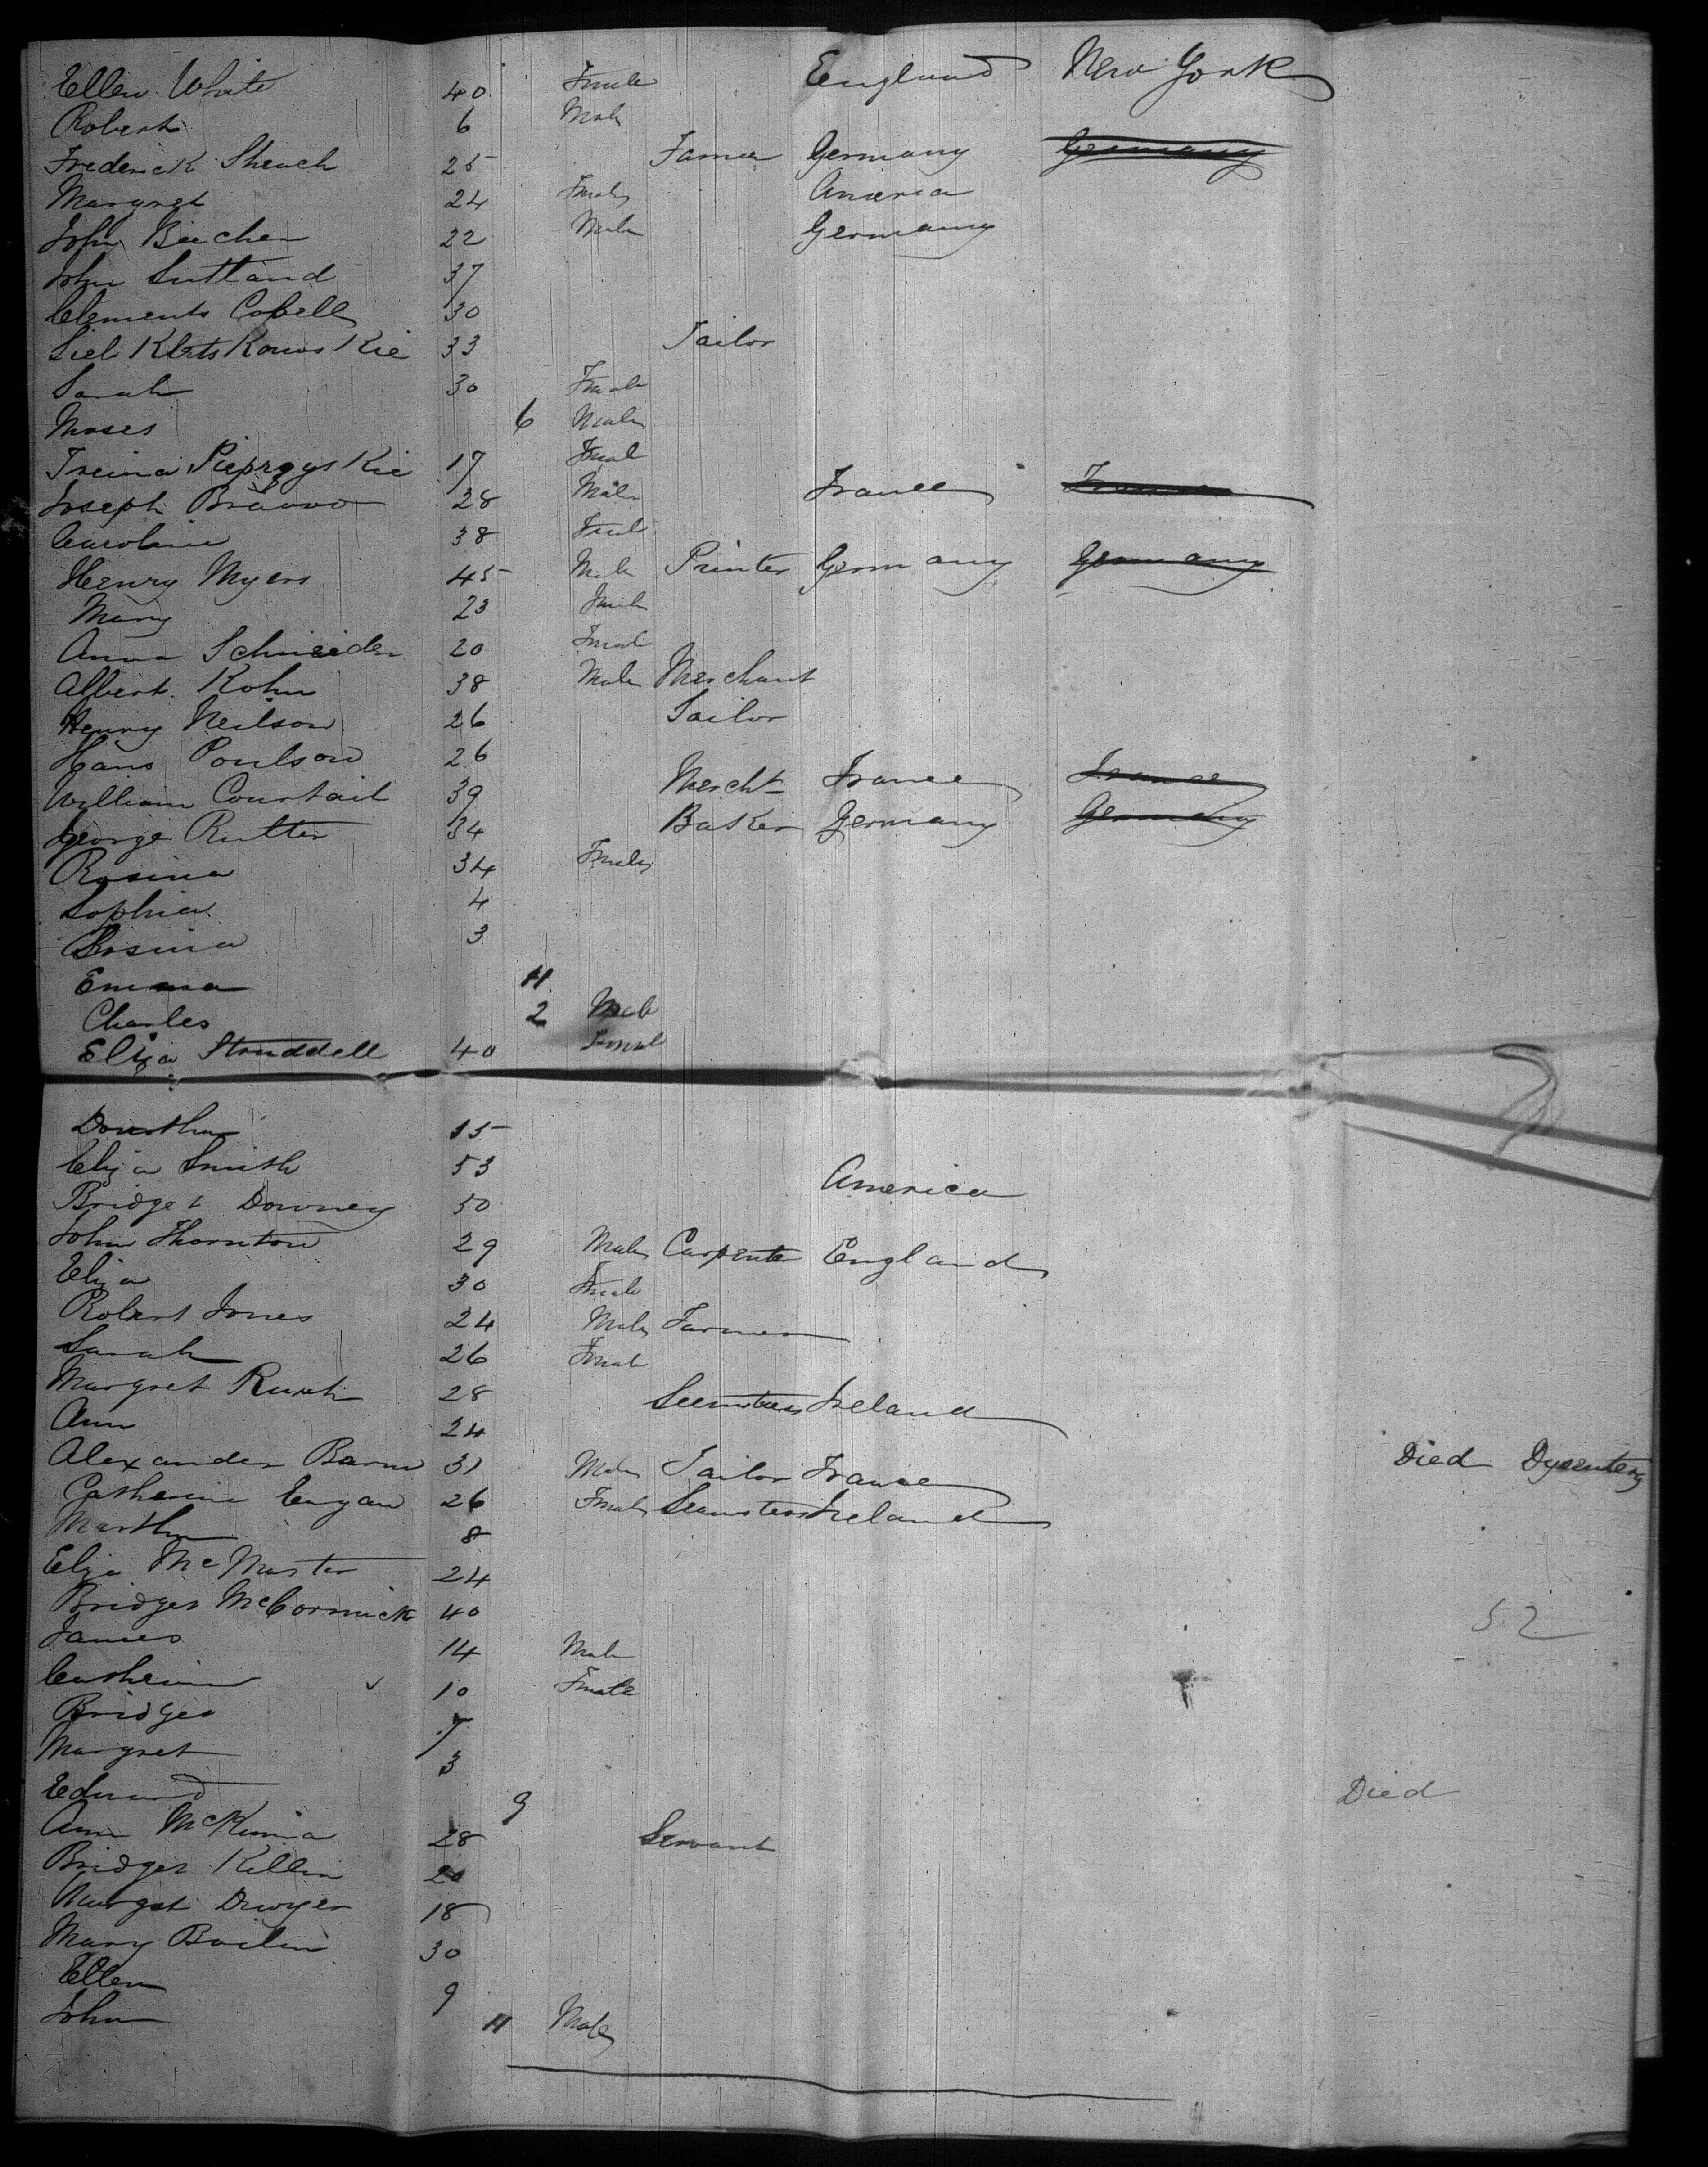 Ellen White 40 Female England New York
Robert 6 Male
Frederick Shench 25 Farmer Germany Germany
Margret 24 Female America
John Beecher 22 Male Germany
John Sutland 37
Clements Cobell 30
Siel KletsKowsKie 33 Tailor
Sarah 30 Female
Moses 6 Male
Treina PieprzysKie 17 Female
Joseph Bravvo 28 Male France France
Caroline 38 Female
Henry Myers 45 Male Printer Germany Germany
Mary 23 Female
Anna Schneider 20 Female
Albert Kohn 38 Male Merchant
Henry Neilson 26 Sailor
Hans Poulson 26
William Courtail 39 Mercht France France
George Rutter 34 Baker Germany Germany
Rosina 34 Female
Sophia 4
Rosina 3
Emma 11
Charles 2 Male
Eliza Struddell 40 Female
Dorothea 15
Eliza Smith 53 America
Bridget Downey 50
John Thornton 29 Male Carpenter England
Eliza 30 Female
Robert Jones 24 Male Farmer
Sarah 26 Female
Margret Rurk 28 Seemstress Ireland
Ann 24
Alexander Barne 31 Male Tailor France Died Dysentery
Catherine Eugan 26 Female Seamstress Ireland
Martha 8
Eliza McMaster 24
Bridget McCormick 40 52
James 14 Male
Catherine 10 Female
Bridget 7
Margret 3
Edward 9 Died
Ann McKenna 28 Servant
Bridget Killin 20
Margret Dwyer 18
Mary Boilin 30
Ellen 9
John 11 Male